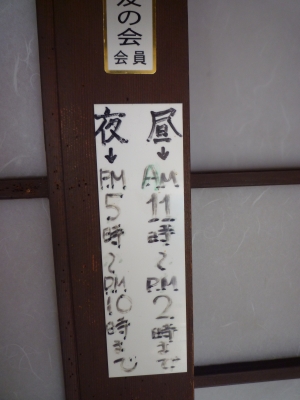 友の会
会員
昼↓AM11時~PM2時まで
夜↓PM5時~PM10時まで